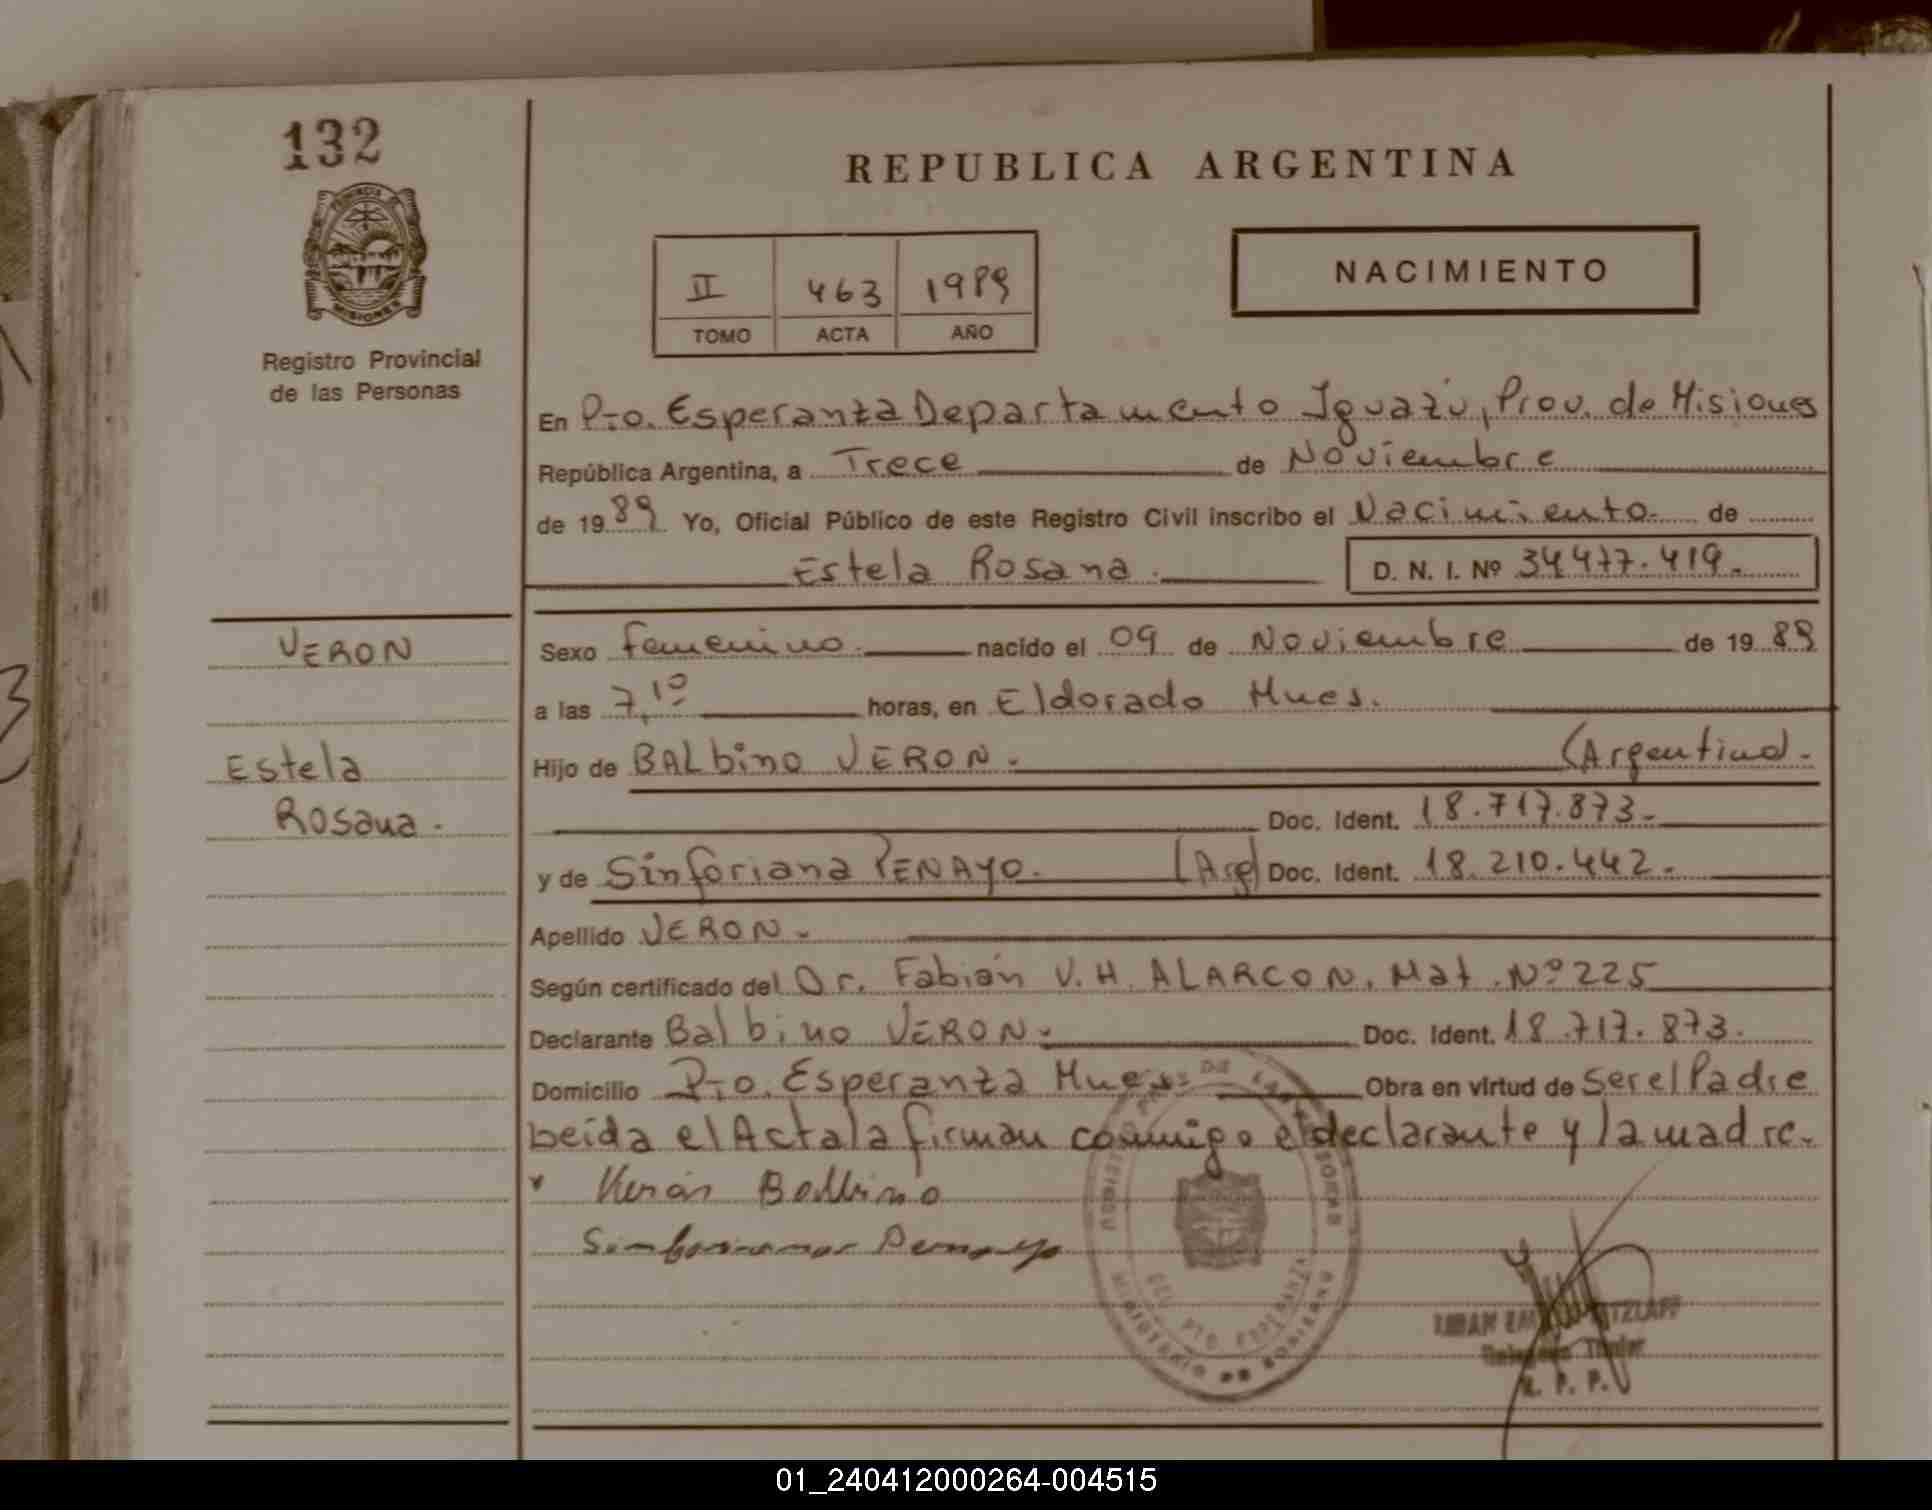 132
REPUBLICA ARGENTINA
PROVINCIA DE
MISIONES
Registro Provincial
de las Personas
II 463 1989
TOMO ACTA AÑO
NACIMIENTO
En Pto. Esperanza Departamento Iguazú, Prov. de Misiones
República Argentina, a Trece de Noviembre
de 1989 Yo, Oficial Público de este Registro Civil inscribo el Nacimiento. de
Estela Rosana. D. N. I. Nº 34477.419.
VERON
Sexo femenino. nacido el 09 de Noviembre de 1989
a las 7,10 horas, en Eldorado Mnes.
Estela
Rosana.
Hijo de BALbino VERON. (Argentino).
Doc. Ident. 18.717.873.
y de Sinforiana PENAYO. (Arg) Doc. Ident. 18.210.442.
Apellido VERON.
Según certificado del Dr. Fabián V.H. ALARCON. Mat. Nº 225
Declarante Balbino VERON. Doc. Ident. 18.717.873.
Domicilio Pto. Esperanza Mnes. Obra en virtud de Ser el Padre
Leída el Acta la firman conmigo el declarante y la madre.
Verón Balbino
Sinforiana Penayo
DE LAS PERSONAS
DEL. PTO. ESPERANZA
MINISTERIO DE GOBIERNO
Titular
R. P. P.
01_240412000264-004515